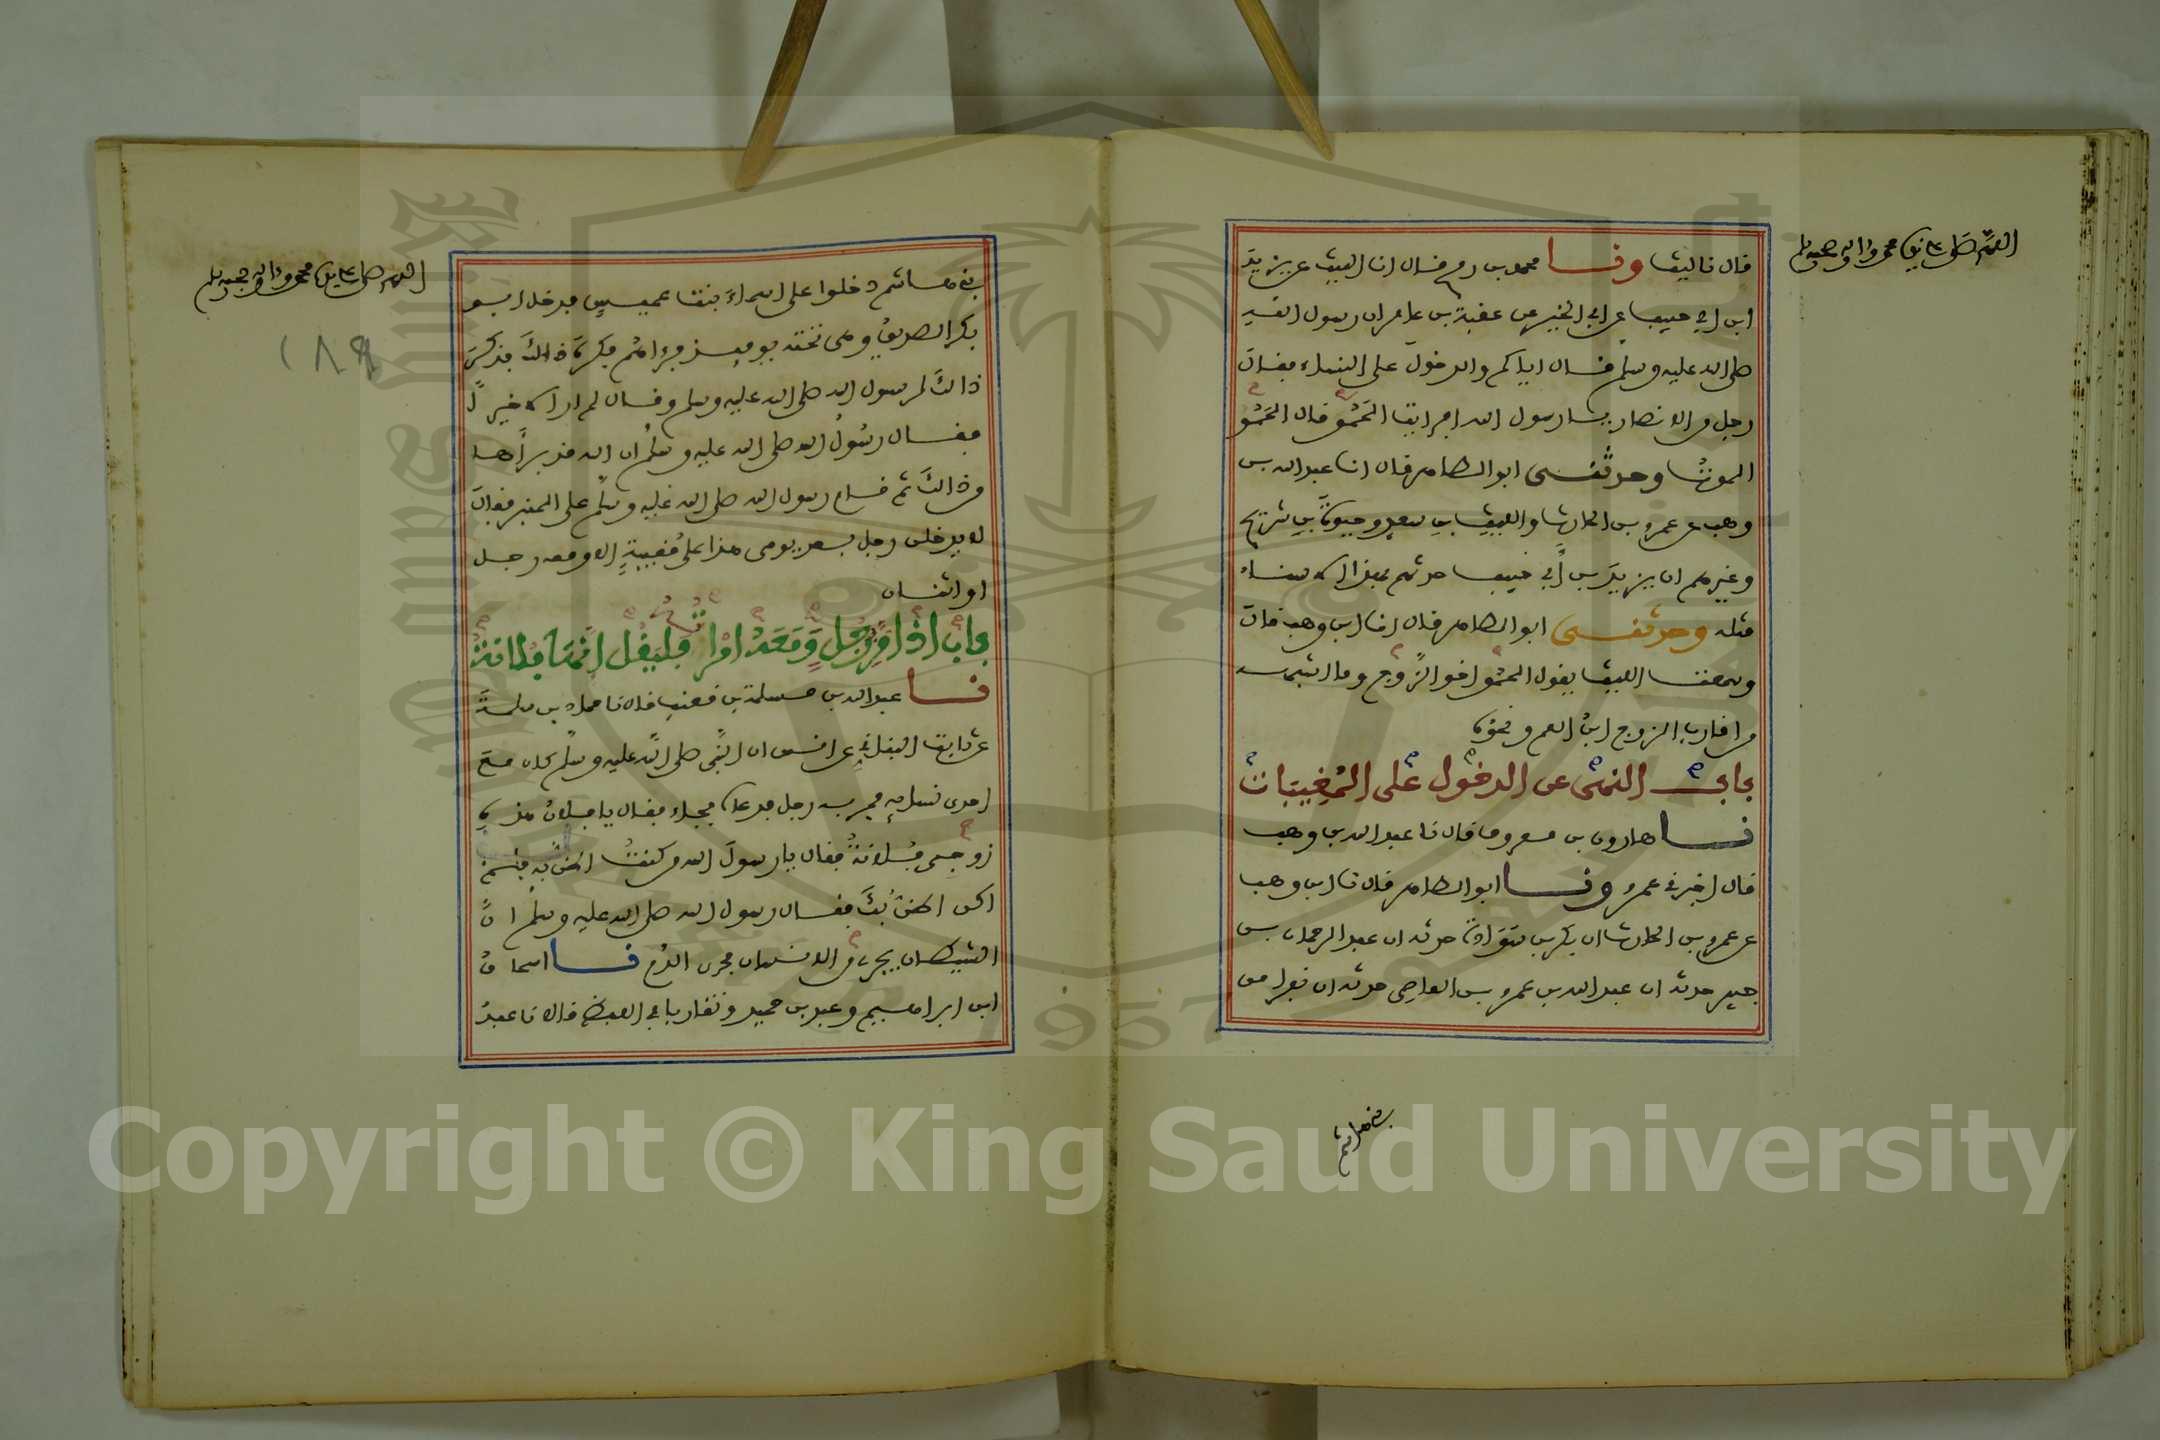 اللهم صل على سيدنا محمد وءاله وصحبه وسلم
قال نا ليث ونا محمد بن رمح قال انا الليث عن يزيد
ابن ابي حبيب عن ابي الخير عن عقبة بن عامر ان رسول الله
صلى الله عليه وسلم قال اياكم والدخول على النساء فقال
رجل من الانصار يا رسول الله افرايت الحمو قال الحمو
الموت وحدثني ابو الطاهر قال انا عبد الله بن
وهب عن عمرو بن الحارث والليث بن سعد وحيوة بن شريح
وغيرهم ان يزيد بن أبي حبيب حدثهم بهذا الاسناد
مثله وحدثني ابو الطاهر قال انا ابن وهب قال
وسمعت الليث يقول الحمو اخو الزوج وما اشبهه
من اقارب الزوج ابن العم ونحوه
باب النهي عن الدخول على المغيبات
نا هارون بن معروف قال نا عبد الله بن وهب
قال اخبرني عمرو ونا ابو الطاهر قال نا ابن وهب
عن عمرو بن الحارث ان بكر بن سوادة حدثه ان عبد الرحمان بن
جبير حدثه ان عبد الله بن عمرو بن العاصي حدثه ان نفرا من
بني هاشم
اللهم صل على سيدنا محمد وءاله وصحبه وسلم
١٨٩
بني هاشم دخلوا على اسماء بنت عميس فدخل ابو
بكر الصديق وهي تحته يوميذ فرءاهم فكره ذالك فذكر
ذالك لرسول الله صلى الله عليه وسلم وقال لم ار الا خيرًا
فقال رسول الله صلى الله عليه وسلم ان الله قد برأها
من ذالك ثم قام رسول الله صلى الله عليه وسلم على المنبر فقال
لا يدخلن رجل بعد يومي هذا على مغيبة الا ومعه رجل
او اثنان
باب اذا مر رجل ومعه امراته فليقل انها فلانة
نا عبد الله بن مسلمة بن قعنب قال نا حماد بن سلمة
عن ثابت البناني عن انس ان النبي صلى الله عليه وسلم كان مع
احدى نسايه فمر به رجل فدعاه فجاء فقال يا فلان هذه
زوجتي فلانة فقال يا رسول الله من كنت اظن به فلم
اكن اظن بك فقال رسول الله صلى الله عليه وسلم ان
الشيطان يجري من الانسان مجرى الدم نا اسحاق
ابن ابراهيم وعبد بن حميد وتقاربا في اللفظ قالا نا عبد
Copyright © King Saud University
1957